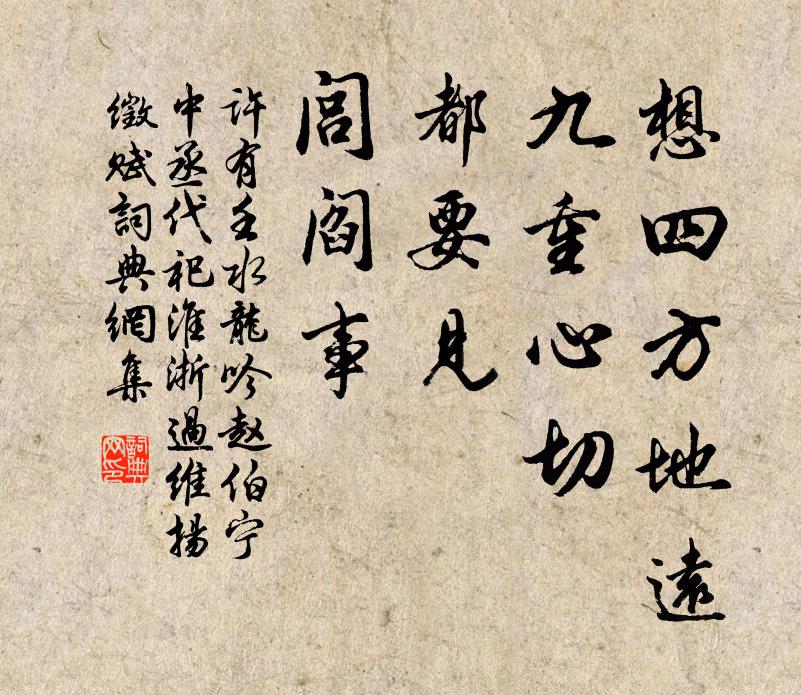 想四方地遠
九重心切
都要見
閭閻事
许有壬水龍吟赵伯宁
中丞代祀淮浙過维揚
徵赋詞典網集
詞典網印